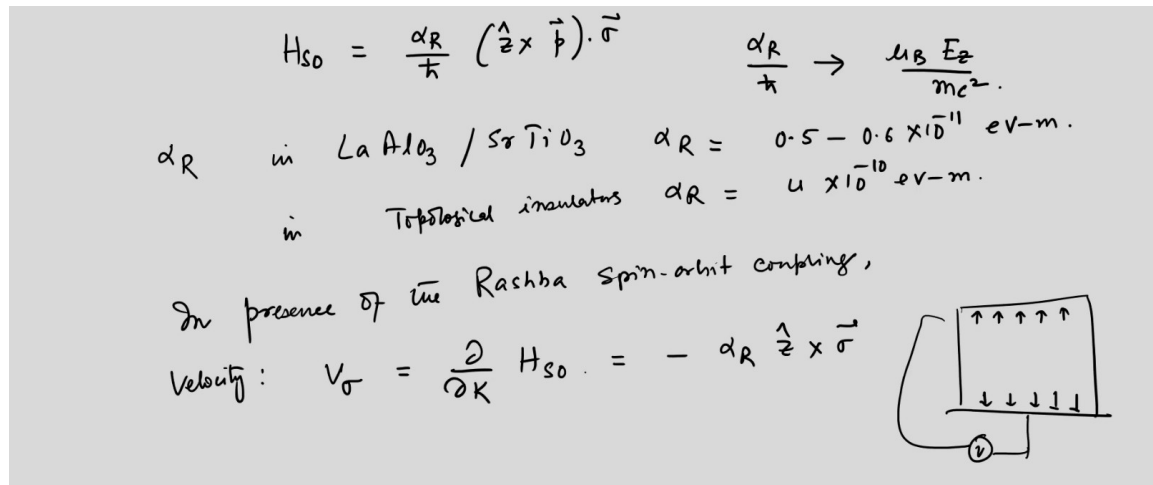 H_SO = α_R/ħ (ẑ × p⃗)·σ⃗ α_R/ħ → μ_B E_z / mc².
α_R in LaAlO₃ / SrTiO₃ α_R = 0.5 – 0.6 × 10⁻¹¹ ev-m.
in Topological insulators α_R = 4 × 10⁻¹⁰ ev-m.
In presence of the Rashba spin-orbit coupling,
Velocity: V_σ = ∂/∂K H_SO. = – α_R ẑ × σ⃗
↑ ↑ ↑ ↑ ↑
↓ ↓ ↓ ↓ ↓
V